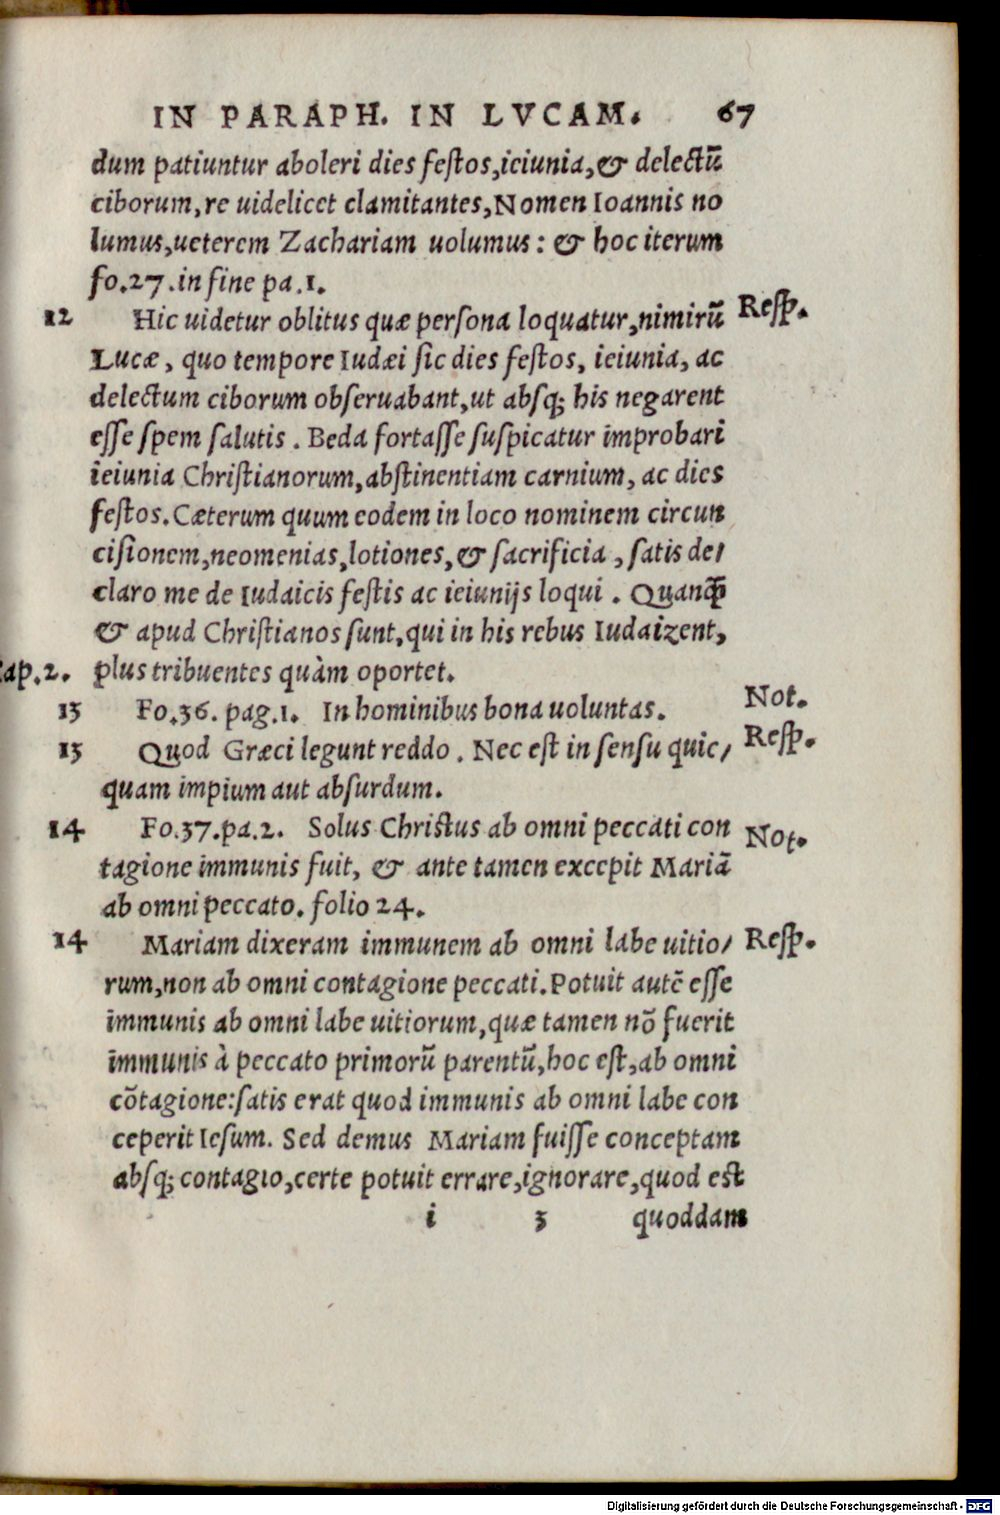 IN PARAPH. IN LVCAM. 67
dum patiuntur aboleri dies festos,ieiunia,& delectū
ciborum,re uidelicet clamitantes,Nomen Ioannis no
lumus,ueterem Zachariam uolumus: & hoc iterum
fo.27.in fine pa.1.
12 Hic uidetur oblitus quæ persona loquatur,nimirū Resp.
Lucæ, quo tempore Iudæi sic dies festos, ieiunia, ac
delectum ciborum obseruabant,ut absq; his negarent
esse spem salutis. Beda fortasse suspicatur improbari
ieiunia Christianorum,abstinentiam carnium, ac dies
festos.Cæterum quum eodem in loco nominem circun
cisionem,neomenias,lotiones,& sacrificia, satis de/
claro me de Iudaicis festis ac ieiunijs loqui. Quanq̃
& apud Christianos sunt,qui in his rebus Iudaizent,
ap.2. plus tribuentes quàm oportet.
13 Fo.36. pag.1. In hominibus bona uoluntas. Not.
13 Quod Græci legunt reddo. Nec est in sensu quic/ Resp.
quam impium aut absurdum.
14 Fo.37.pa.2. Solus Christus ab omni peccati con Not.
tagione immunis fuit, & ante tamen excepit Mariā
ab omni peccato. folio 24.
14 Mariam dixeram immunem ab omni labe uitio/ Resp.
rum,non ab omni contagione peccati.Potuit autē esse
immunis ab omni labe uitiorum,quæ tamen nō fuerit
immunis à peccato primorū parentū,hoc est,ab omni
cōtagione:satis erat quod immunis ab omni labe con
ceperit Iesum. Sed demus Mariam fuisse conceptam
absq; contagio,certe potuit errare,ignorare,quod est
i 3 quoddam
Digitalisierung gefördert durch die Deutsche Forschungsgemeinschaft - DFG